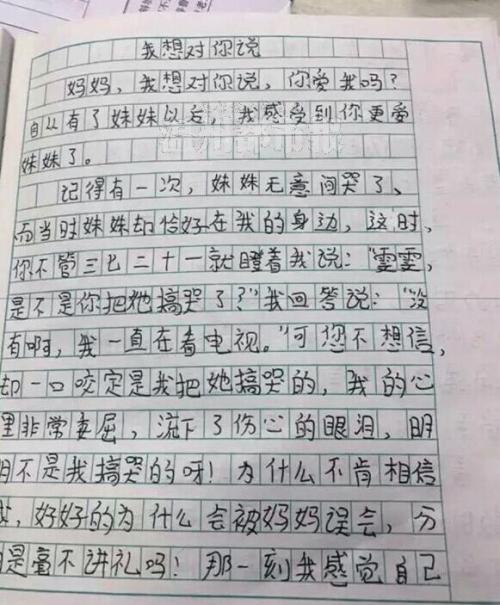 我想对你说
妈妈，我想对你说，你爱我吗？
自从有了妹妹以后，我感受到你更爱
妹妹了。
记得有一次，妹妹无意间哭了、
而当时妹妹却恰好在我的身边，这时，
你不管三七二十一就瞪着我说：“
是不是你把她搞哭了？”我回答说：“没
有啊，我一直在看电视。”可您不想信，
却一口咬定是我把她搞哭的，我的心
里非常委屈，流下了伤心的眼泪，明
明不是我搞哭的呀！为什么不肯相信
，好好的为什么会被妈妈误会，分
是毫不讲礼吗！那一刻我感觉自己